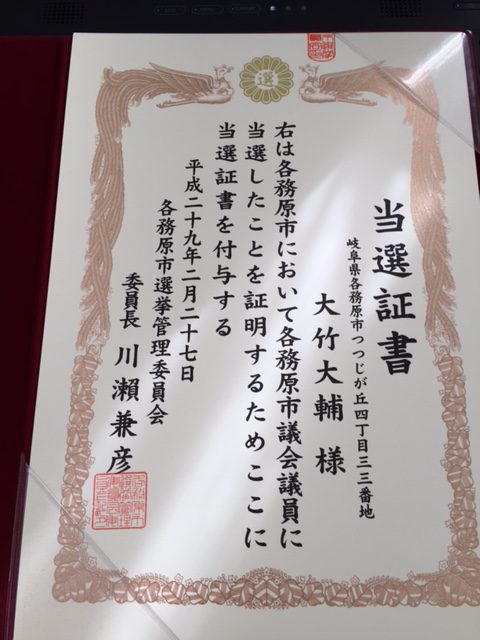 選
当選証書
岐阜県各務原市つつじが丘四丁目三三番地
大竹大輔 様
右は各務原市において各務原市議会議員に
当選したことを証明するためここに
当選証書を付与する
平成二十九年二月二十七日
各務原市選挙管理委員会
委員長 川瀬兼彦